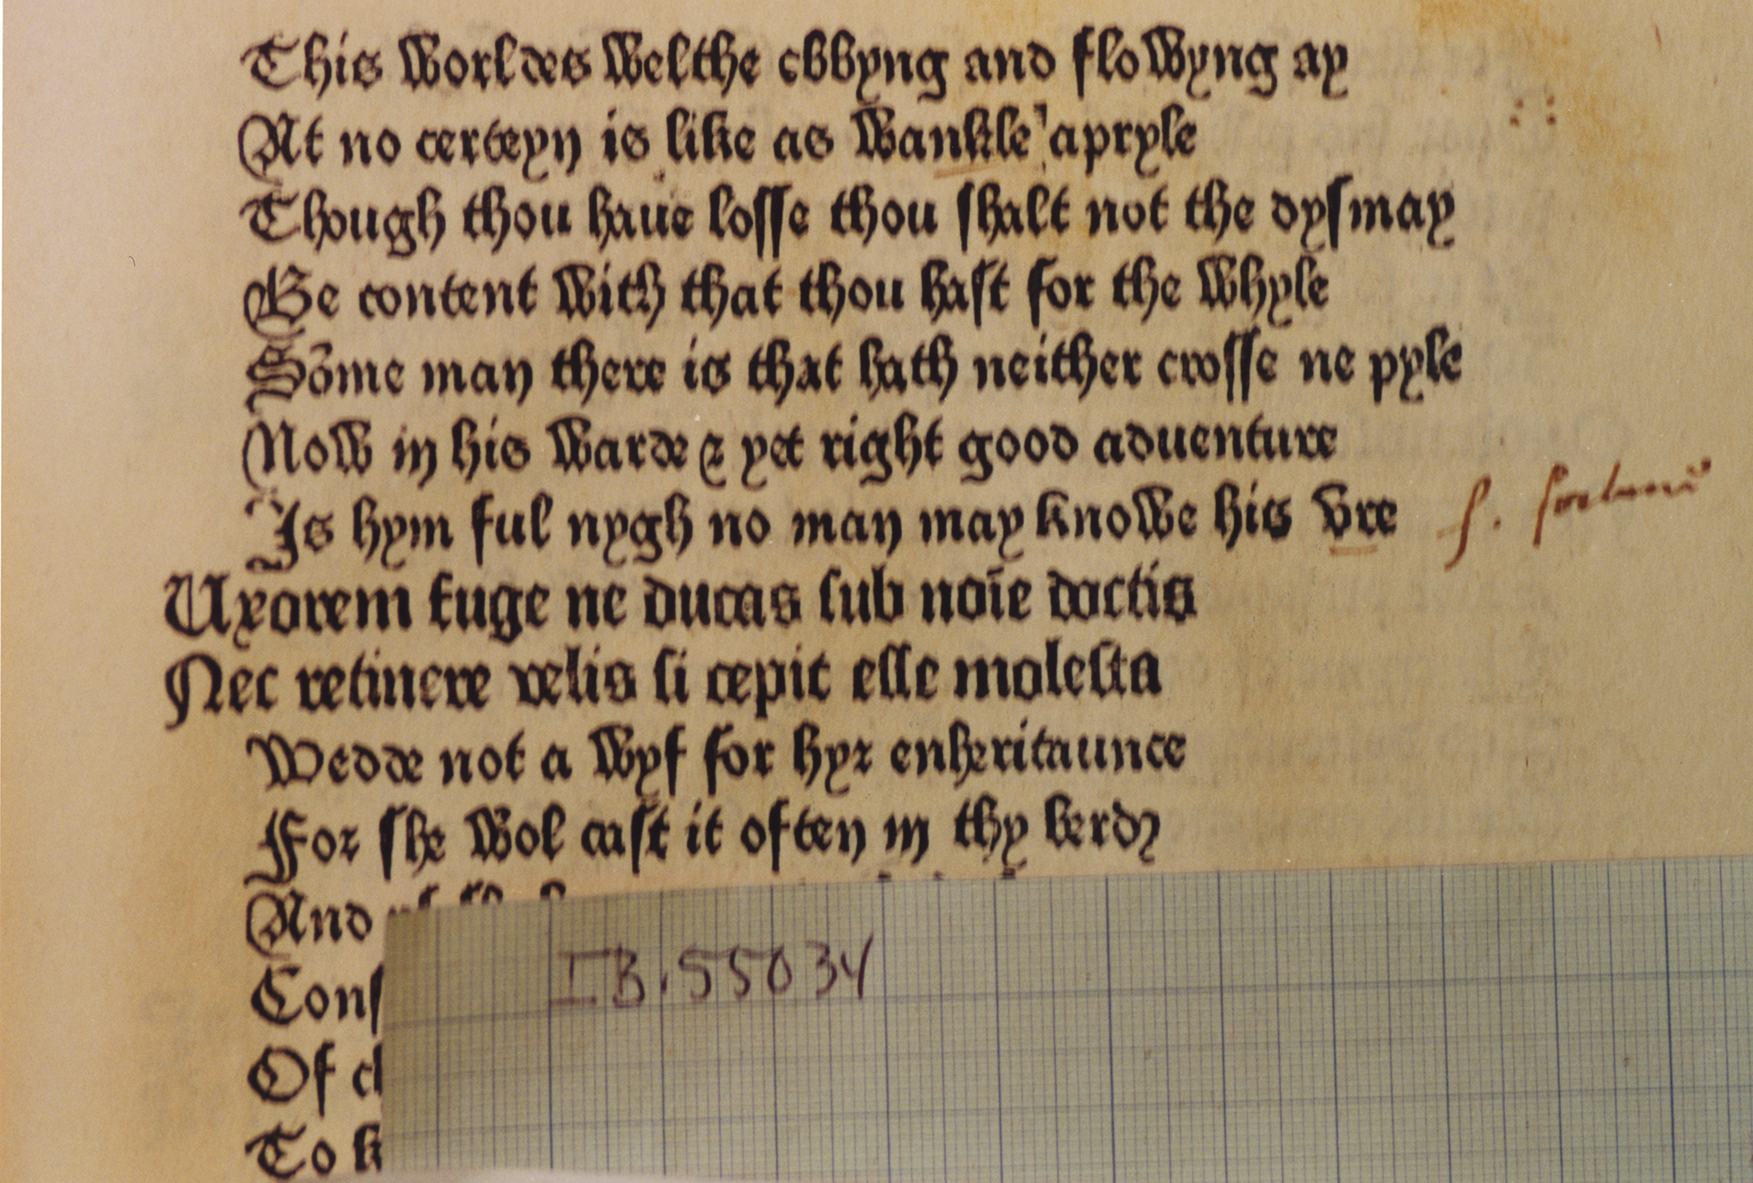 This worldes welthe ebbyng and flowyng ay
At no certeyn is like as wankle apryle
Though thou haue losse thou shalt not the dysmay
Be content with that thou hast for the whyle
Some man there is that hath neither crosse ne pyle
Now in his warde & yet right good aduenture
Is hym ful nygh no man may knowe his vre
Uxorem fuge ne ducas sub noīe doctis
Nec retinere velis si cepit esse molesta
Wedde not a wyf for hyr enheritaunce
For she wol cast it often in thy berd
And
Cons
Of cl
To k
IB.55034